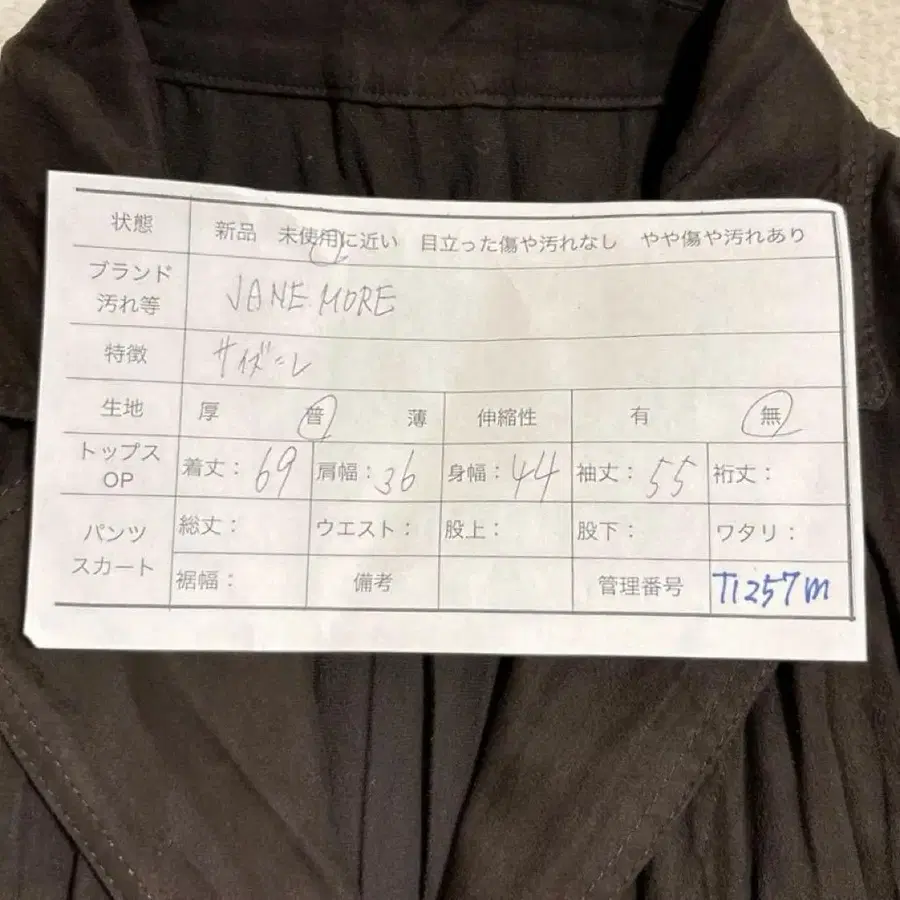 状態 新品 未使用に近い 目立った傷や汚れなし やや傷や汚れあり
ブランド
汚れ等 JANE MORE
特徴 サイズ=L
生地 厚 普 薄 伸縮性 有 無
トップス
OP 着丈: 69 肩幅: 36 身幅: 44 袖丈: 55 裄丈:
パンツ
スカート 総丈: ウエスト: 股上: 股下: ワタリ:
裾幅: 備考 管理番号 T1257m